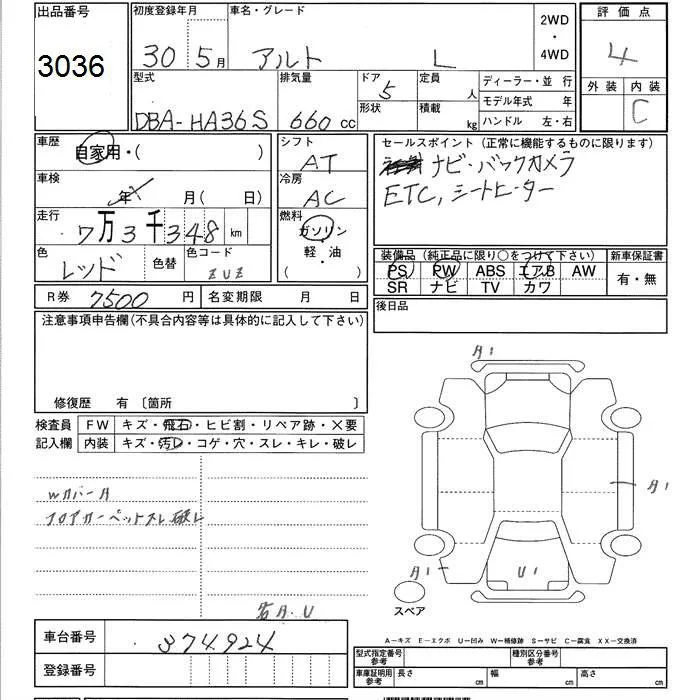 出品番号
3036
初度登録年月
30 5月
車名・グレード
アルト L
2WD
・
4WD
評価点
4
外装 内装
C
型式
DBA-HA36S
排気量
660 cc
ドア
5
形状
定員
人
積載
kg
ディーラー・並行
モデル年式 年
ハンドル 左・右
車歴
自家用・( )
車検
年 月(日)
走行
7万3千348km
色
レッド
色替
色コード
ZUZ
シフト
AT
冷房
AC
燃料
ガソリン
軽・油
( )
セールスポイント(正常に機能するものに限ります)
ナビ・バックカメラ
ETC, シートヒーター
装備品(純正品に限り○をつけて下さい)
PS PW ABS エアB AW
SR ナビ TV カワ
新車保証書
有・無
R券 7500円
名変期限 月 日
後日品
注意事項申告欄(不具合内容等は具体的に記入して下さい)
修復歴 有 〔箇所 〕
検査員
記入欄
FW キズ・飛石・ヒビ割・リペア跡・×要
内装 キズ・汚レ・コゲ・穴・スレ・キレ・破レ
WカバーA
フロアカーペットスレ破レ
A・U
A1
A1
A1
U1
スペア
A−キズ E−エクボ U−凹み W−補修跡 S−サビ C−腐食 XX−交換済
車台番号
374924
登録番号
型式指定番号
参考
種別区分番号
参考
車庫証明用
参考
長さ cm
幅 cm
高さ cm